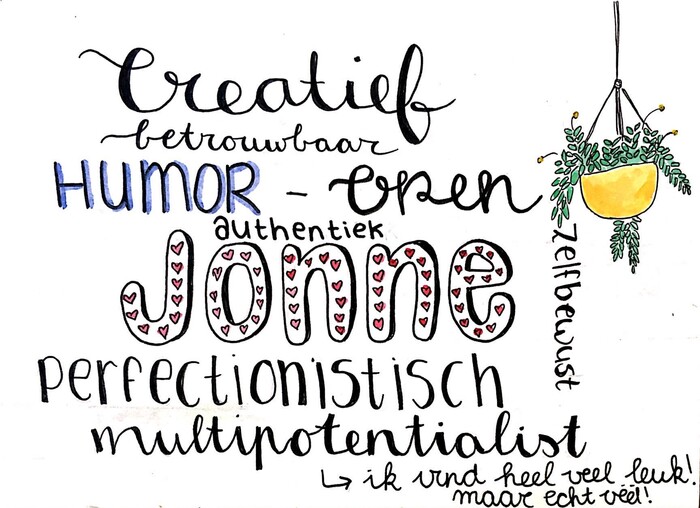 Creatief
betrouwbaar
HUMOR - open
authentiek
Jonne
zelfbewust
perfectionistisch
multipotentialist
↳ ik vind heel veel leuk!
maar echt véél!